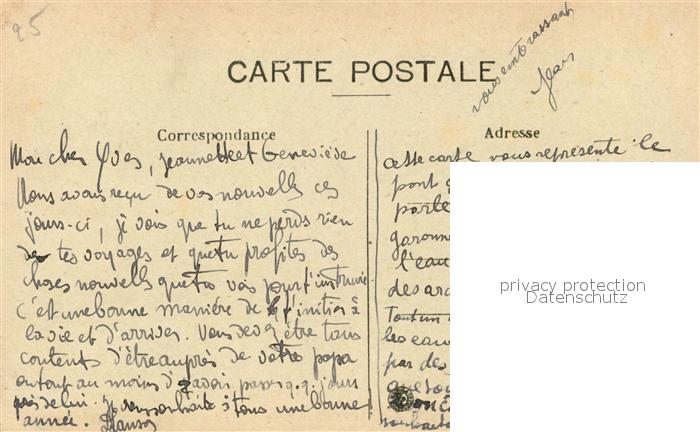 25
CARTE POSTALE
vous embrassant
Correspondance
Adresse
Mon cher Yves, Jeannette et Geneviève
Nous avons reçu de vos nouvelles ces
jours-ci, je vois que tu ne perds rien
de tes voyages et que tu profites des
choses nouvelles que tu vois pour t'instruire
c'est une bonne manière de t'initier à
la vie et d'arriver. Vous devez être tous
contents d'être auprès de votre papa
ou tout au moins d'avoir passé q.q. jours
près de lui. Je vous souhaite à tous une bonne
année.
cette carte vous représente le
pont
porte
garonne
l'eau
des arc
tout un
les eau
par des
que
souhait
privacy protection
Datenschutz